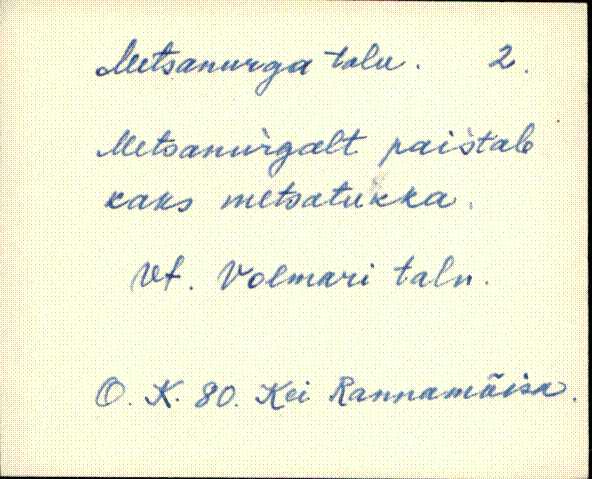 Metsanurga talu. 2.
Metsanùrgalt paìstab
kaks metsatukka.
Vt. Volmari talu.
O. K. 80. Kei Rannamõisa.